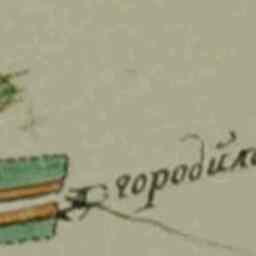 городило